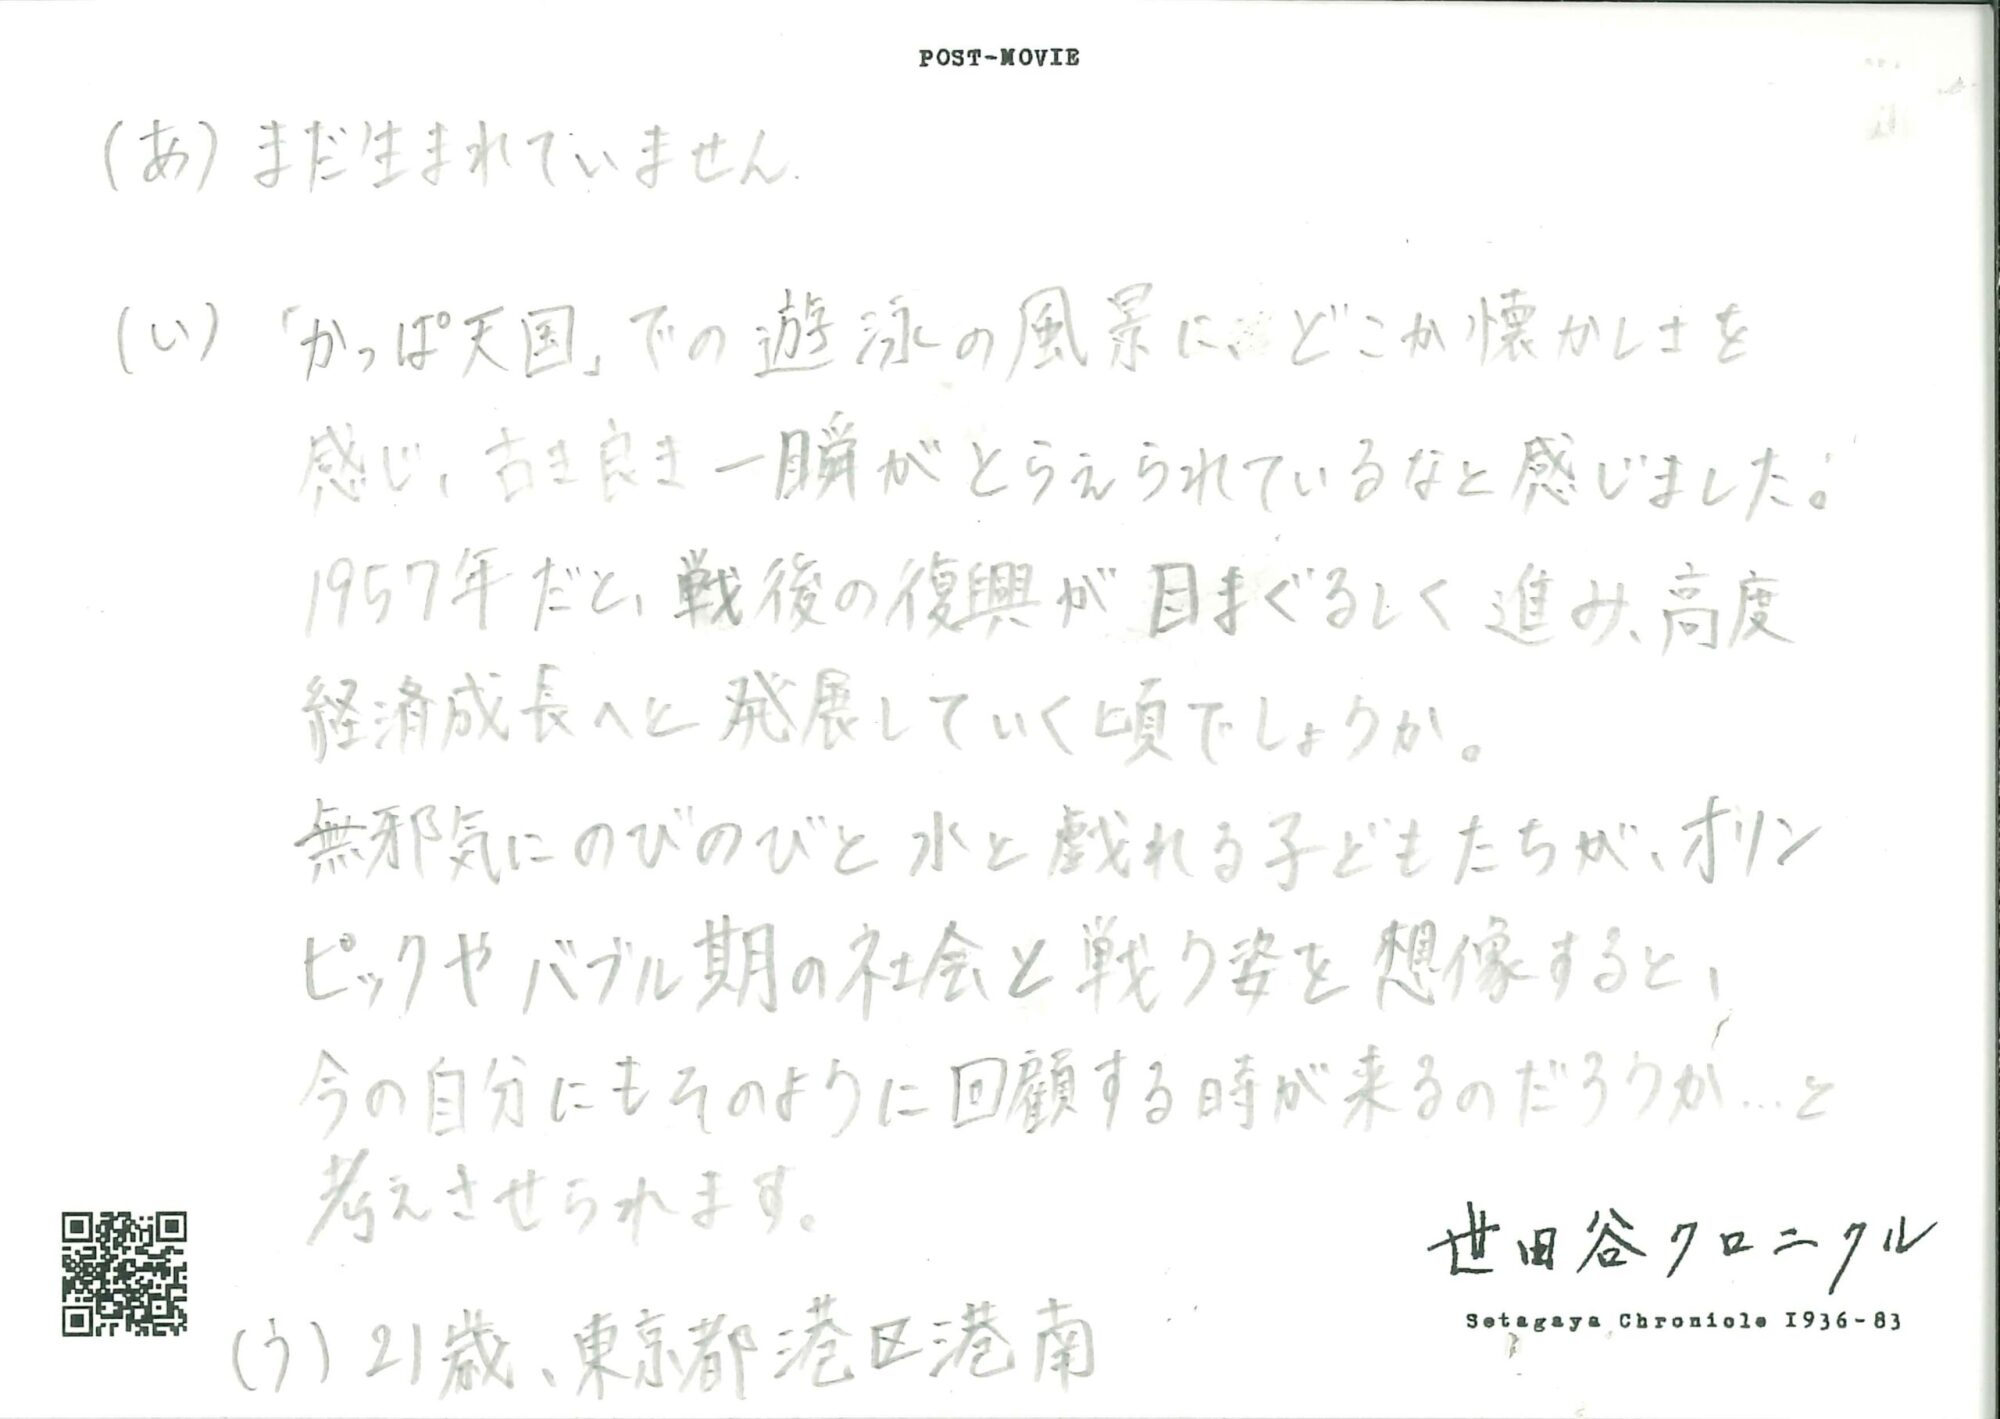 POST-MOVIE
(あ) まだ生まれていません.
(い) 「かっぱ天国」での遊泳の風景に、どこか懐かしさを
感じ、古き良き一瞬がとらえられているなと感じました。
1957年だと、戦後の復興が目まぐるしく進み、高度
経済成長へと発展していく頃でしょうか。
無邪気にのびのびと水と戯れる子どもたちが、オリン
ピックやバブル期の社会と戦う姿を想像すると、
今の自分にもそのように回顧する時が来るのだろうか…と
考えさせられます。
(う) 21歳、東京都港区港南
世田谷クロニクル
Setagaya Chronicle 1936-83